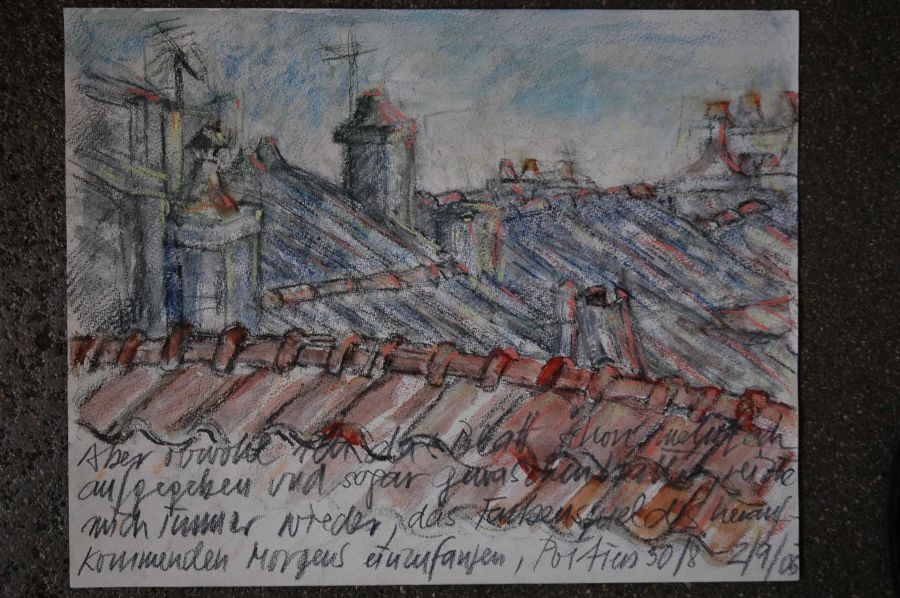 Aber obwohl ich das Blatt schon mehrfach
aufgegeben und sogar gewaschen habe, reizte
mich immer wieder, das Farbenspiel des herauf-
kommenden Morgens einzufangen, 30/8 - 2/9/05